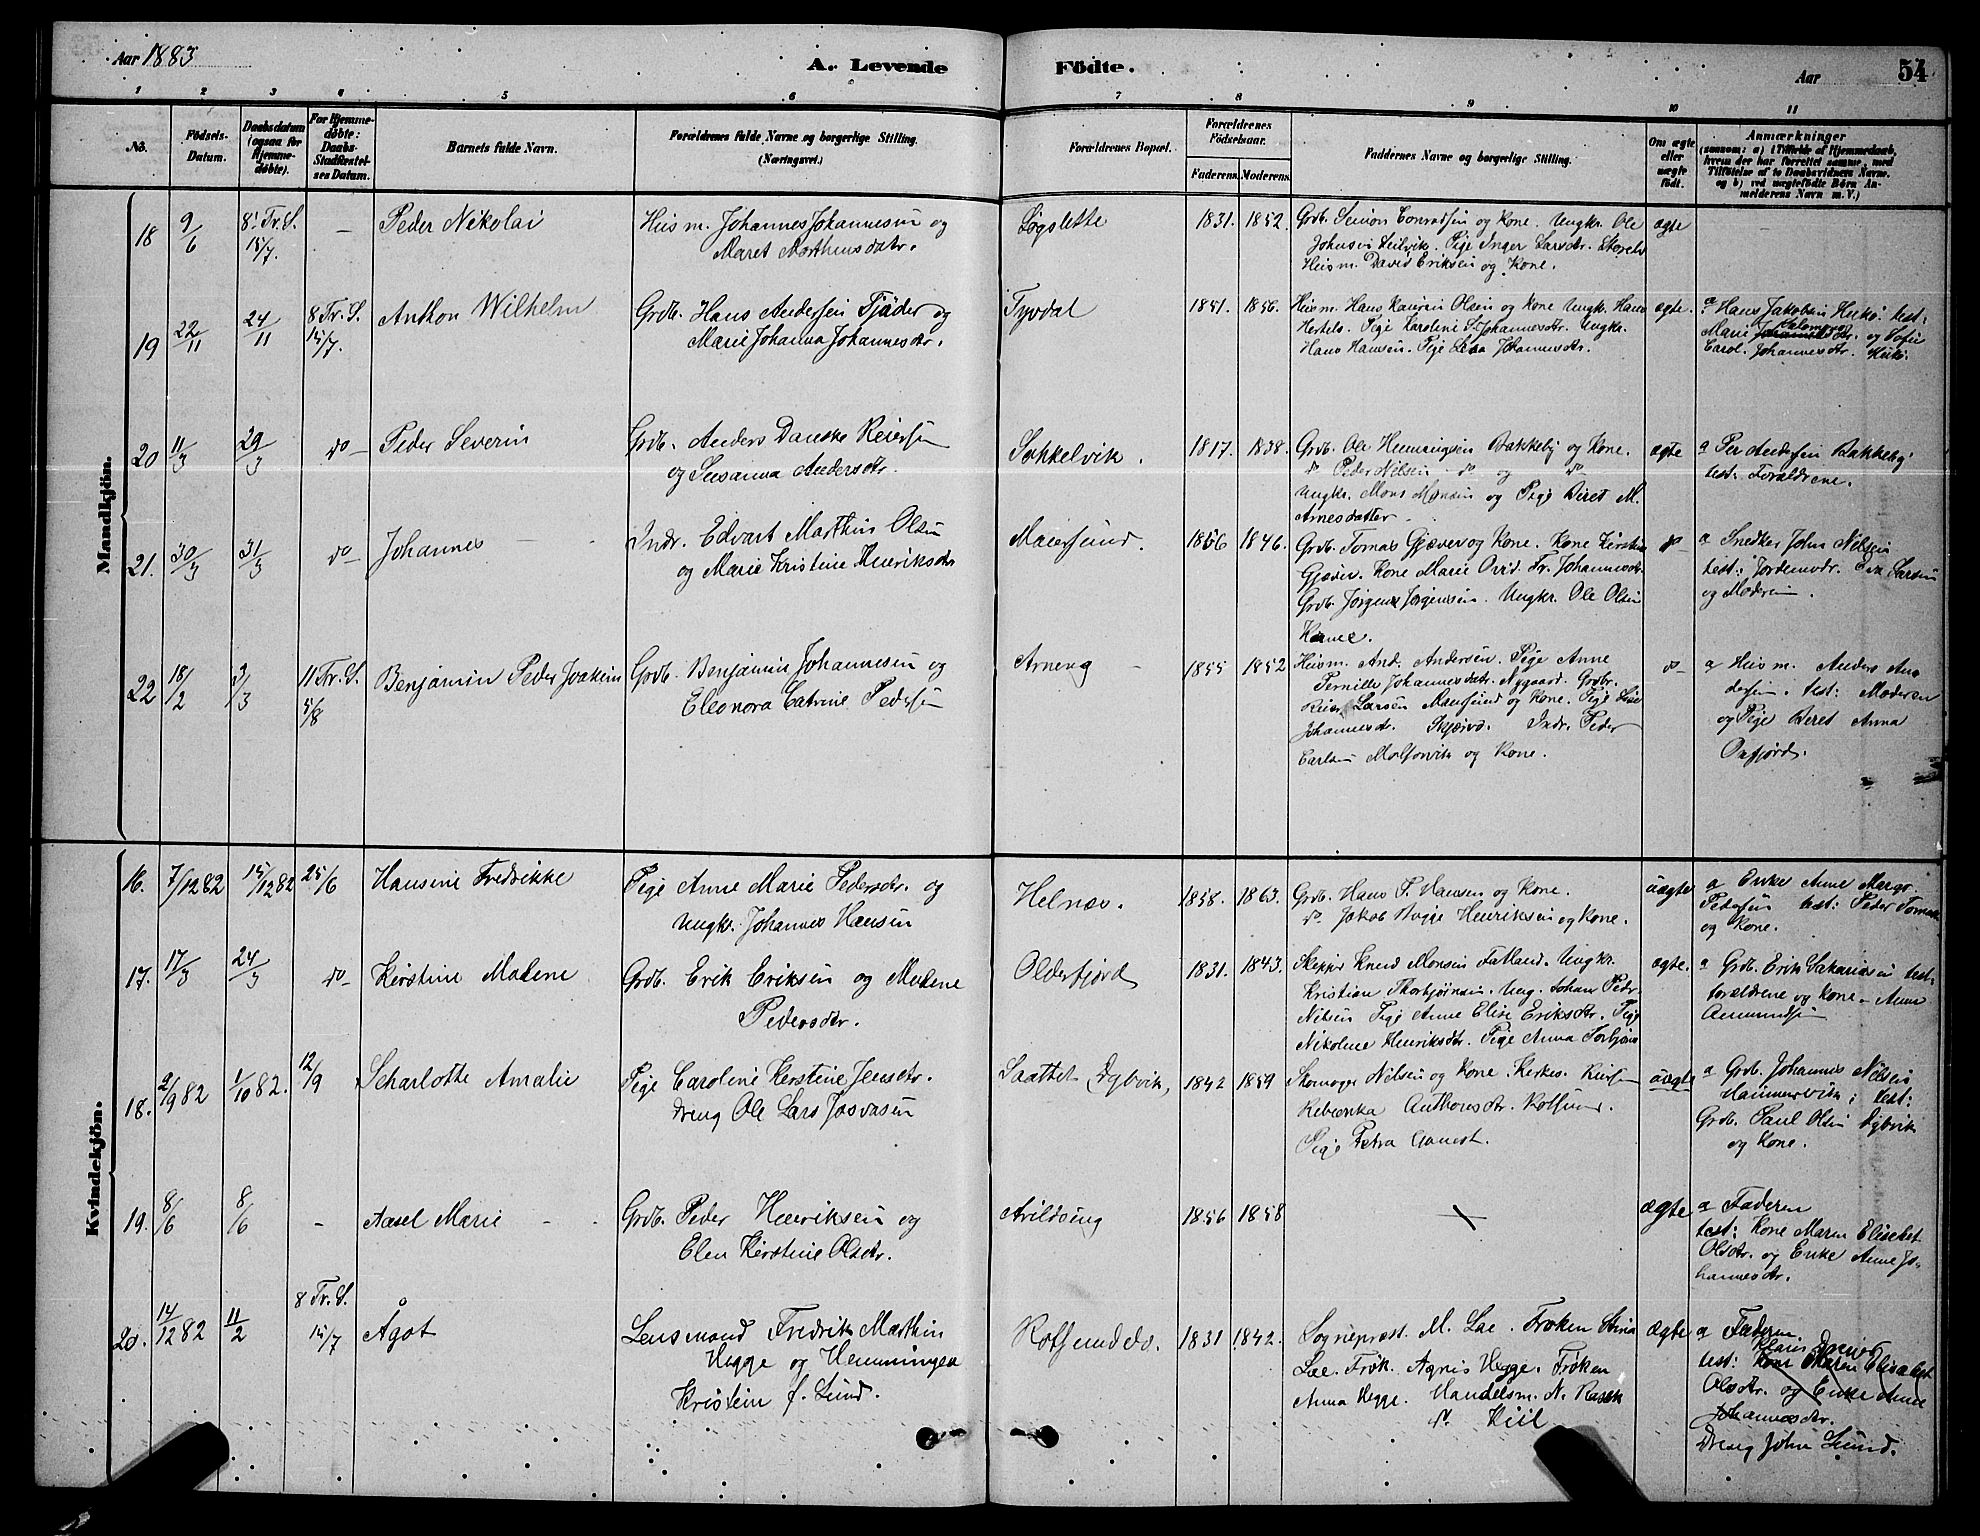 Aar 1883
A. Levende Födte.
Aar 54
1 2 3 4 5 6 7 8 9 10 11
No.
Födsels-Datum.
Daabsdatum (ogsaa for Hjemmedöbte).
For Hjemmedöbte: Daabs-Stadfæstelses Datum.
Barnets fulde Navn.
Forældrenes fulde Navne og borgerlige Stilling. (Næringsvei.)
Forældrenes Bopæl.
Forældrenes Födselsaar.
Faderens. Moderens.
Faddernes Navne og borgerlige Stilling.
Om ægte eller uægte födt.
Anmærkninger
(saasom: a) i Tilfælde af Hjemmedaab, hvem der har forrettet samme, med Tilföielse af to Daabsvidners Navne. og b) ved uægtefödte Börn Anmelderens Navn m. V.)
Mandkjön.
18 9/6 8. Tr. S. 15/7. – Peder Nikolai
Husm. Johannes Johannesen og
Maret Marthinsdatr.
Løgslette 1831. 1852.
Grdb. Simon Conradsen og Kone. Ungkr. Ole
Johnsen Leilvik. Pige Inger Larsdtr. Storelv
Husm. David Eriksen og Kone.
ægte –
19 22/11 24/11 8 Tr. S. 15/7. Anthon Wilhelm
Grdb. Hans Andersen Fjäder og
Marie Johanna Johannesdtr.
1851. 1856.
Husm. Hans Olsen og Kone Ungkr. Hans
Pige Karoline S. Johannesdtr. Ungkr.
Hans Hansen. Pige Lena Johannesdtr.
ægte. a Hans Jakobsen test:
Marie og Sofie
Carol. Johannesdtr.
20 11/3 29/3 do – Peder Severin
Grdb. Anders Danske Reiersen
og Susanna Andersdtr.
Sokkelvik. 1817. 1838.
Grdb. Ole Henningsen Bakkeby og Kone.
do Peder Nilsen do og do
Ungkr. Mons Monsen og Pige Beret M.
Arnesdatter.
ægte a Per Andersen Bakkeby
test: Forældrene.
21. 30/3 31/3 do – Johannes –
Indr. Edvart Marthin Olsen
og Marie Kristine Henriksdtr
Maursund. 1856 1846.
Grdb. Tomas Gjæver og Kone. Kone Kirstine
Gjæver. Kone Marie Ovid. Fr. Johannesdtr.
Grdb. Jørgen Jørgensen. Ungkr. Ole Olsen
do – a Snedker John Nilsen
test: Jordemodr. Larsen
og Moderen.
22 18/2 3/3 11 Tr. S. 5/8 Benjamin Peder Joakim
Grdb. Benjamin Johannesen og
Eleonora Catrine Pedersen
Arneng – 1855 1852
Husm. And. Andersen. Pige Anne
Pernille Johannesdatr. Nygaard. Grdbr.
Reier Larsen Maursund og Kone. Pige Lise
Johannesdtr. Skjærvø. Indr. Peder
Carlsen og Kone.
do – a Husm. Anders An
dersen. test: Moderen
og Pige Beret Anna
Oxfjord.
Kvindekjön.
16. 7/12 82 15/12 82 25/6 Hansine Fredrikke
Pige Anne Marie Pedersdtr. og
Ungk. Johannes Hansen
Helnæs. 1858. 1863.
Grdb. Hans P. Hansen og Kone.
do. Jakob Bugge Henriksen og Kone.
uægte a Enke Anne Margr.
Pedersen test: Peder Tomas
og Kone.
17. 17/3 24/3 do – Kerstine Madene
Grdb. Erik Eriksen og Madene
Pedersdtr.
Olderfjord 1831. 1843.
Skipper Knud Monsen Fatland. Ungkr.
Kristian Thorbjørnsen. Ung. Johan Pedr.
Nilsen Pige Anne Elise Eriksdtr. Pige
Nikoline Henriksdtr. Pige Anna Torbjørns
ægte. a Grdb. Erik Sakariasen test:
forældrene og Kone – Anne
Aanundsen
18. 2/9 82 1/10 82. 12/9 Scharlotte Amalie
Pige Caroline Kerstine Jensdtr.
Dreng Ole Lars Josvasen
Dybvik, 1842 1859
Skomager Nilsen og Kone.
Rebecka Anthonsdtr. Rotsund.
Pige Petra
uægte a Grdb. Johannes Nilsen
Hammervik; test:
Grdb. Paul Olsen Dybvik
og Kone.
19. 8/6 8/6 – Aasel Marie –
Grdb. Peder Henriksen og
Elen Kirstine Olsdtr.
Arildeing 1856 1858
ægte a Faderen
test: Kone Maren Elisabet
Olsdtr. og Enke Anne Jo-
hannesdtr.
20. 14/12 82 11/2 8 Tr. S. 15/7 Ågot
Lensmand Fredrik Marthin
Hegge og Hemmingea
Kristein f. Lund.
Rotsundelv. 1831. 1842.
Sogneprest. M. Lae. Frøken Stina
Lae. Frøk. Agnes Hegge. Frøken
Anna Hegge. Handelsm. N. Rasch
do. Kiil
ægte a Faderen.
test: Kone Maren Elisabet
Olsdtr. og Enke Anne
Johannesdtr.
Dreng John Lund.